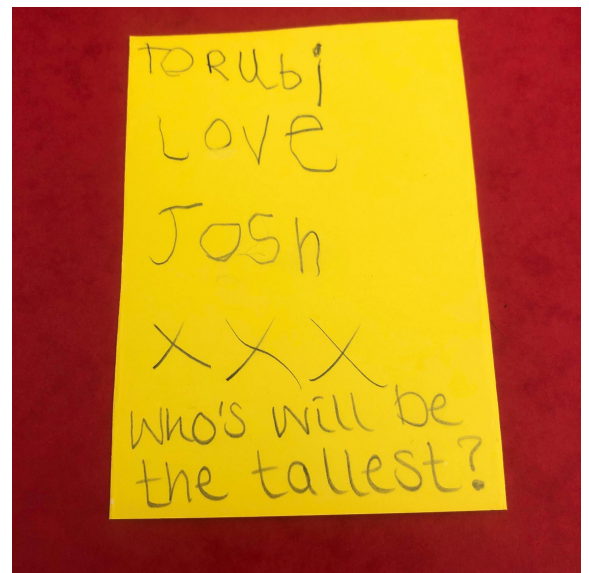 TO RUbi
LOVe
JoSh
x x x
Who's will be
the tallest?